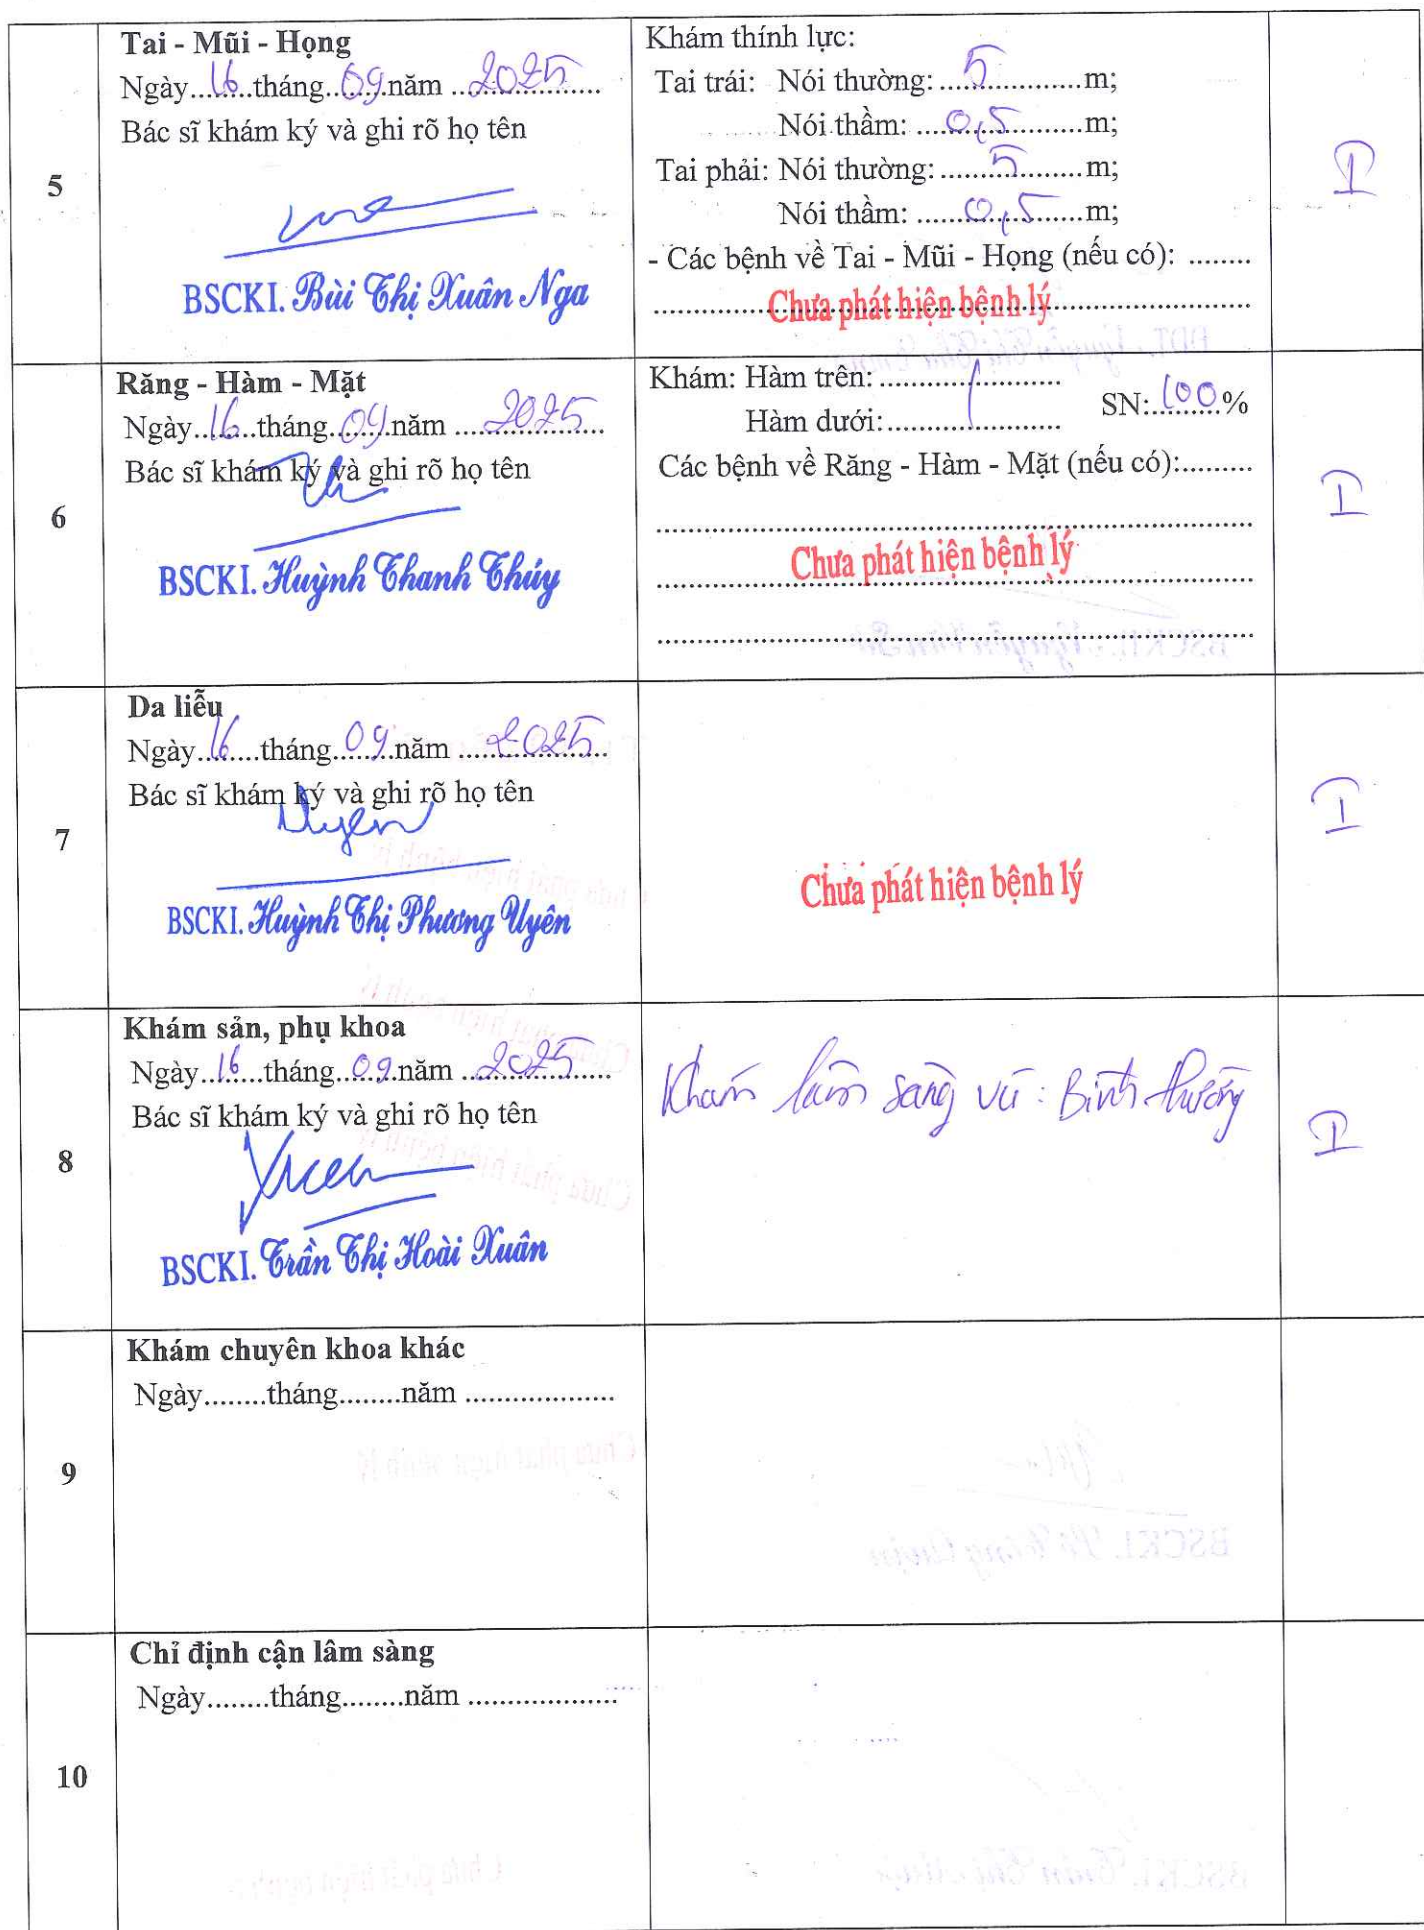 5
Tai - Mũi - Họng
Ngày...16...tháng...09...năm ...2025...
Bác sĩ khám ký và ghi rõ họ tên
BSCKI. Bùi Thị Xuân Nga
Khám thính lực:
Tai trái: Nói thường: ......5......m;
Nói thầm: ......0,5......m;
Tai phải: Nói thường: ......5......m;
Nói thầm: ......0,5......m;
- Các bệnh về Tai - Mũi - Họng (nếu có): ........
Chưa phát hiện bệnh lý
I
6
Răng - Hàm - Mặt
Ngày...16...tháng...09...năm ...2025...
Bác sĩ khám ký và ghi rõ họ tên
BSCKI. Huỳnh Thanh Thúy
Khám: Hàm trên: ......../........
SN:...100...%
Hàm dưới:........................
Các bệnh về Răng - Hàm - Mặt (nếu có):.........
Chưa phát hiện bệnh lý
I
7
Da liễu
Ngày...16...tháng...09...năm ...2025...
Bác sĩ khám ký và ghi rõ họ tên
Uyên
BSCKI. Huỳnh Thị Phương Uyên
Chưa phát hiện bệnh lý
I
8
Khám sản, phụ khoa
Ngày...16...tháng...09...năm ...2025...
Bác sĩ khám ký và ghi rõ họ tên
BSCKI. Trần Thị Hoài Xuân
Khám lâm sàng vú: Bình thường
I
9
Khám chuyên khoa khác
Ngày........tháng........năm ...................
10
Chỉ định cận lâm sàng
Ngày........tháng........năm ...................